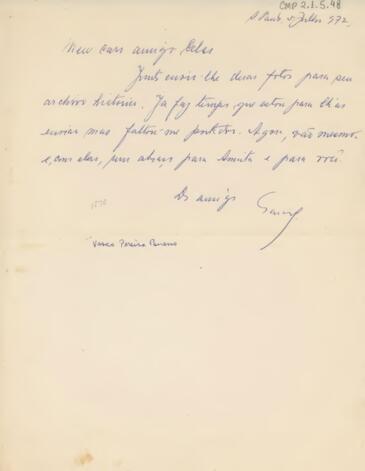 CMP 2.1.5.48
S. Paulo, 972
Meu caro amigo
Junto envio-lhe duas fotos para seu
archivo histórico. Ja faz tempo que estou para lhas
enviar mas faltou-me portador. Agora, vão mesmo
e, com elas, um abraço para e para você.
Do amigo
Vasco Pereira